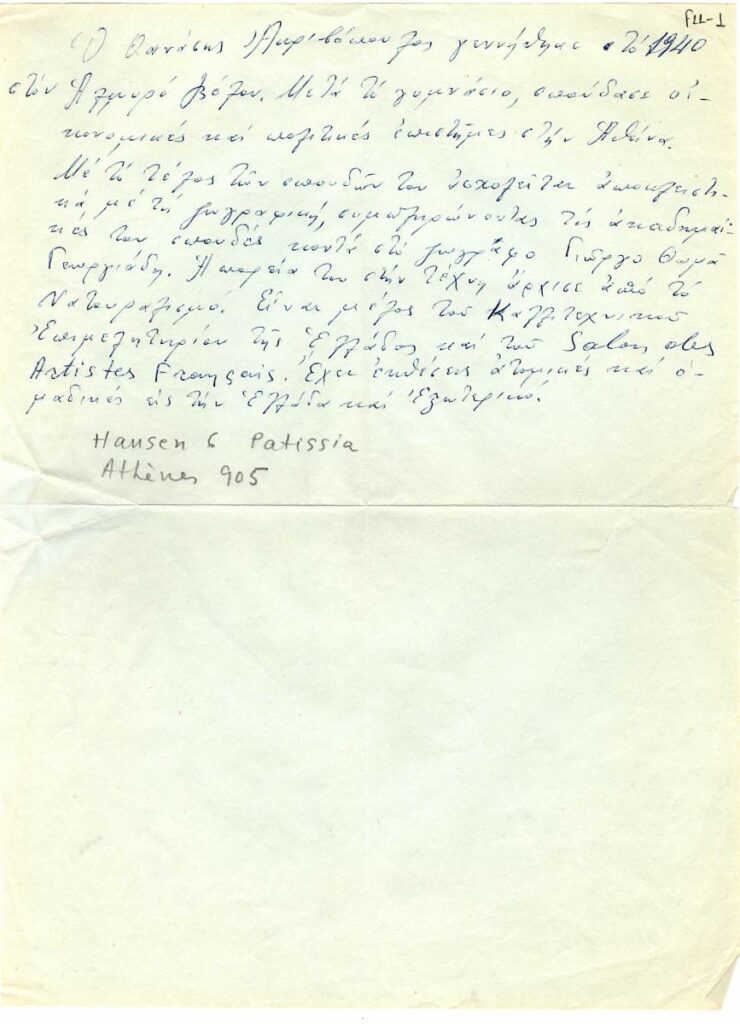 F11-1
Ὁ Θανάσης Ἀκριβόπουλος γεννήθηκε στό 1940
στόν Ἁλμυρό Βόλου. Μετά τό γυμνάσιο, σπούδασε οἰ-
κονομικές καί πολιτικές ἐπιστῆμες στήν Ἀθήνα.
Μέ τό τέλος τῶν σπουδῶν του ἀσχολεῖται ἀποκλειστι-
κά μέ τή ζωγραφική, συμπληρώνοντας τίς ἀκαδημαϊ-
κές του σπουδές κοντά στό ζωγράφο Γιῶργο Θωμᾶ
Γεωργιάδη. Ἡ πορεία του στήν τέχνη ἄρχισε ἀπό τό
Νατουραλισμό. Εἶναι μέλος τοῦ Καλλιτεχνικοῦ
Ἐπιμελητηρίου τῆς Ἑλλάδος καί τοῦ Salon des
Artistes Français. Ἔχει ἐκθέσεις ἀτομικές καί ὁ-
μαδικές εἰς τήν Ἑλλάδα καί Ἐξωτερικό.
Hansen 6 Patissia
Athènes 905